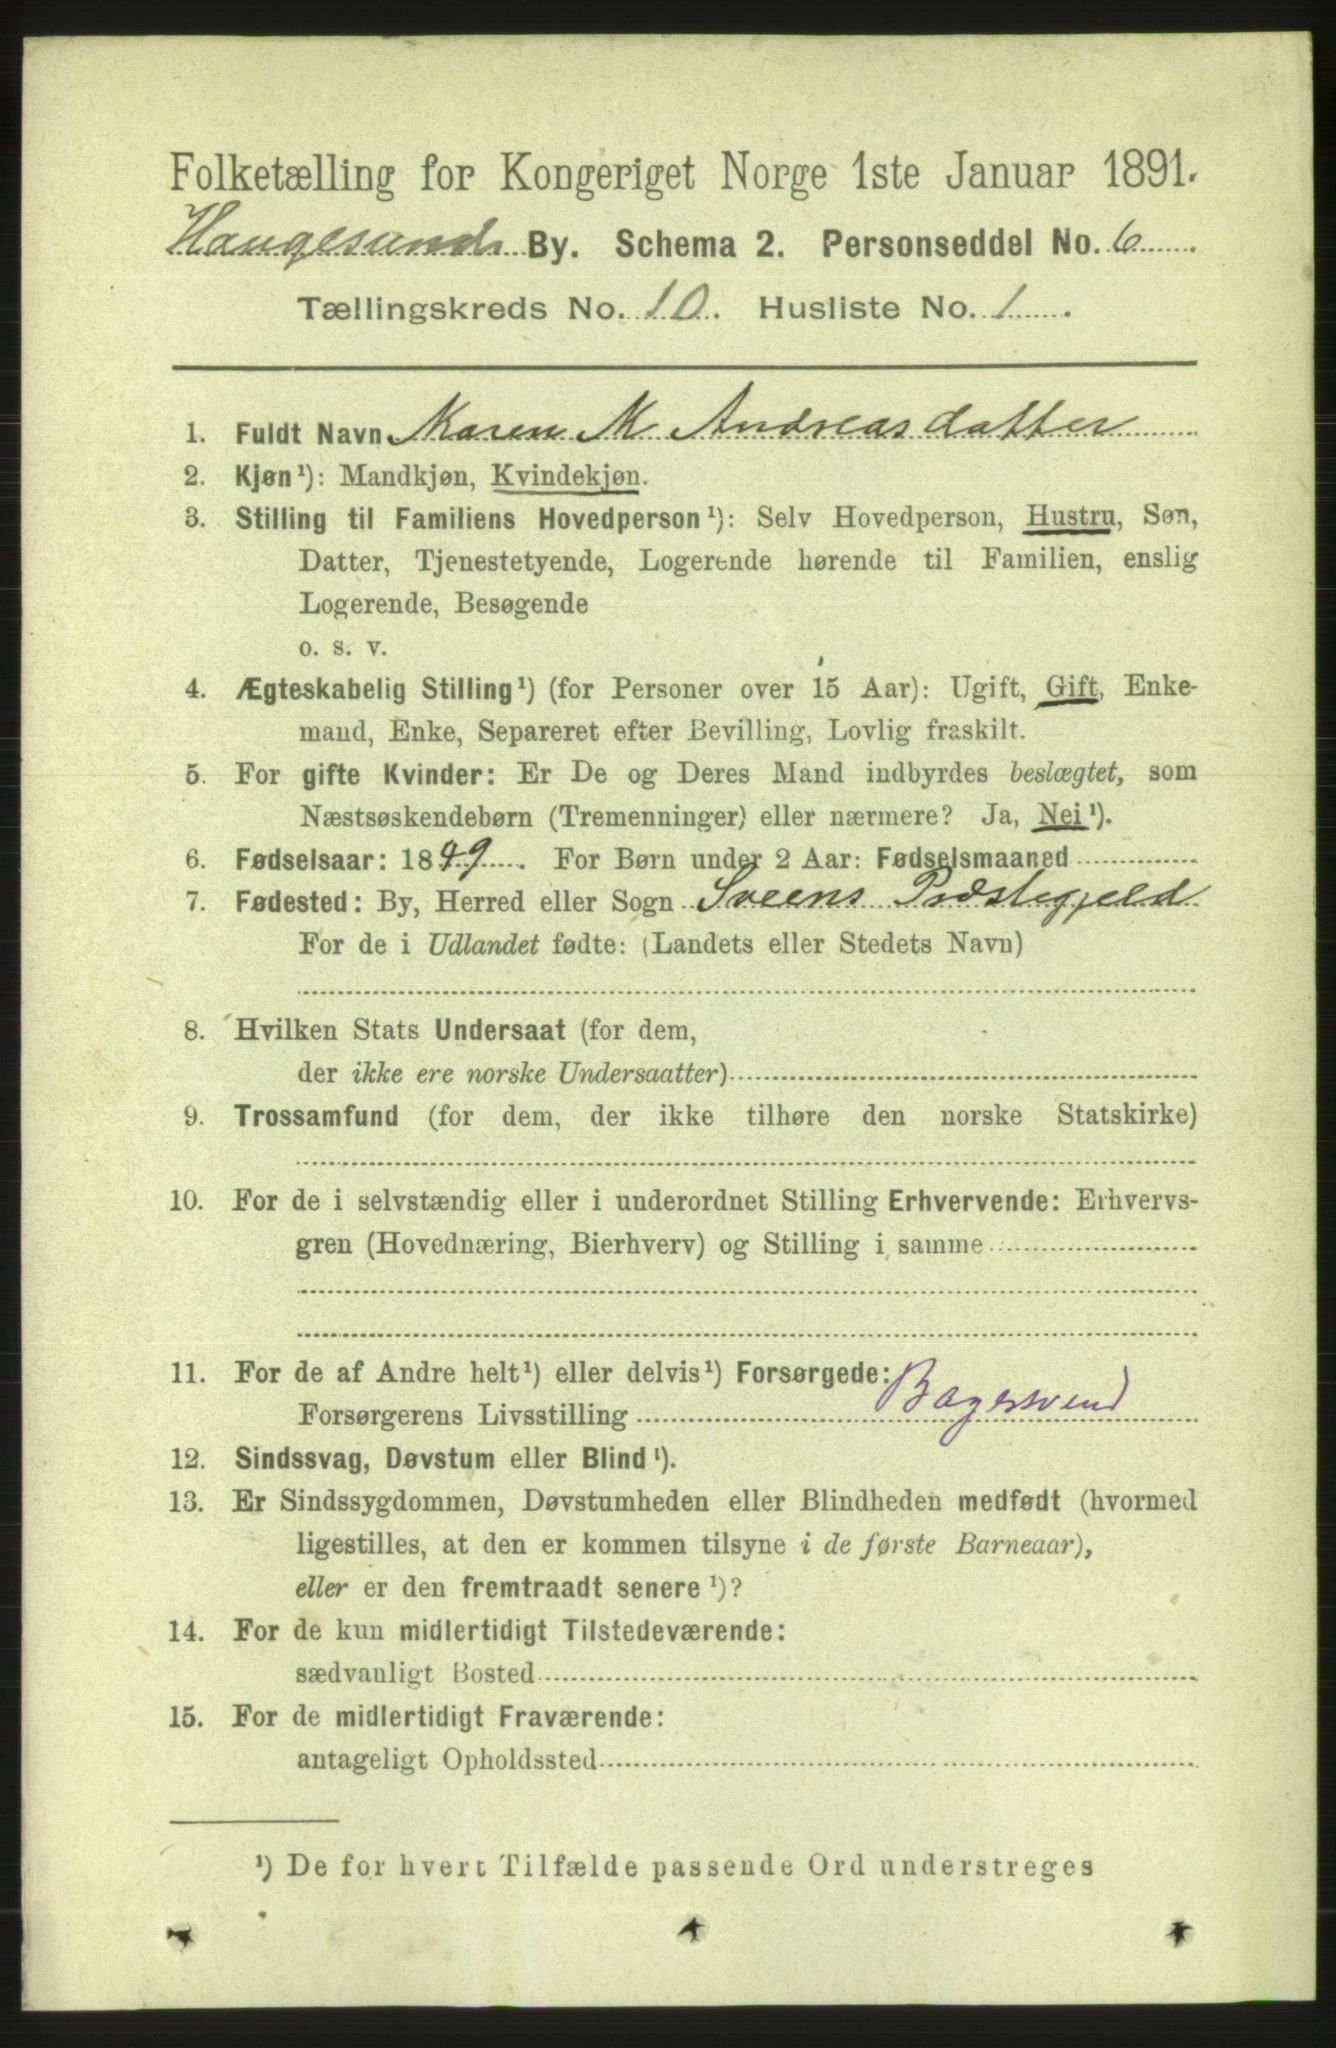 Folketælling for Kongeriget Norge 1ste Januar 1891.
Haugesunds By. Schema 2. Personseddel No. 6
Tællingskreds No. 10. Husliste No. 1
1. Fuldt Navn Maren M Andreasdatter
2. Kjøn¹): Mandkjøn, Kvindekjøn.
3. Stilling til Familiens Hovedperson¹): Selv Hovedperson, Hustru, Søn,
Datter, Tjenestetyende, Logerende hørende til Familien, enslig
Logerende, Besøgende
o. s. v.
4. Ægteskabelig Stilling¹) (for Personer over 15 Aar): Ugift, Gift, Enke-
mand, Enke, Separeret efter Bevilling, Lovlig fraskilt.
5. For gifte Kvinder: Er De og Deres Mand indbyrdes beslægtet, som
Næstsøskendebørn (Tremenninger) eller nærmere? Ja, Nei¹).
6. Fødselsaar: 1849. For Børn under 2 Aar: Fødselsmaaned
7. Fødested: By, Herred eller Sogn Sveens Præstegjeld
For de i Udlandet fødte: (Landets eller Stedets Navn)
8. Hvilken Stats Undersaat (for dem,
der ikke ere norske Undersaatter)
9. Trossamfund (for dem, der ikke tilhøre den norske Statskirke)
10. For de i selvstændig eller i underordnet Stilling Erhvervende: Erhvervs-
gren (Hovednæring, Bierhverv) og Stilling i samme
11. For de af Andre helt¹) eller delvis¹) Forsørgede:
Forsørgerens Livsstilling Bagersvend
12. Sindssvag, Døvstum eller Blind¹).
13. Er Sindssygdommen, Døvstumheden eller Blindheden medfødt (hvormed
ligestilles, at den er kommen tilsyne i de første Barneaar),
eller er den fremtraadt senere¹)?
14. For de kun midlertidigt Tilstedeværende:
sædvanligt Bosted
15. For de midlertidigt Fraværende:
antageligt Opholdssted
¹) De for hvert Tilfælde passende Ord understreges